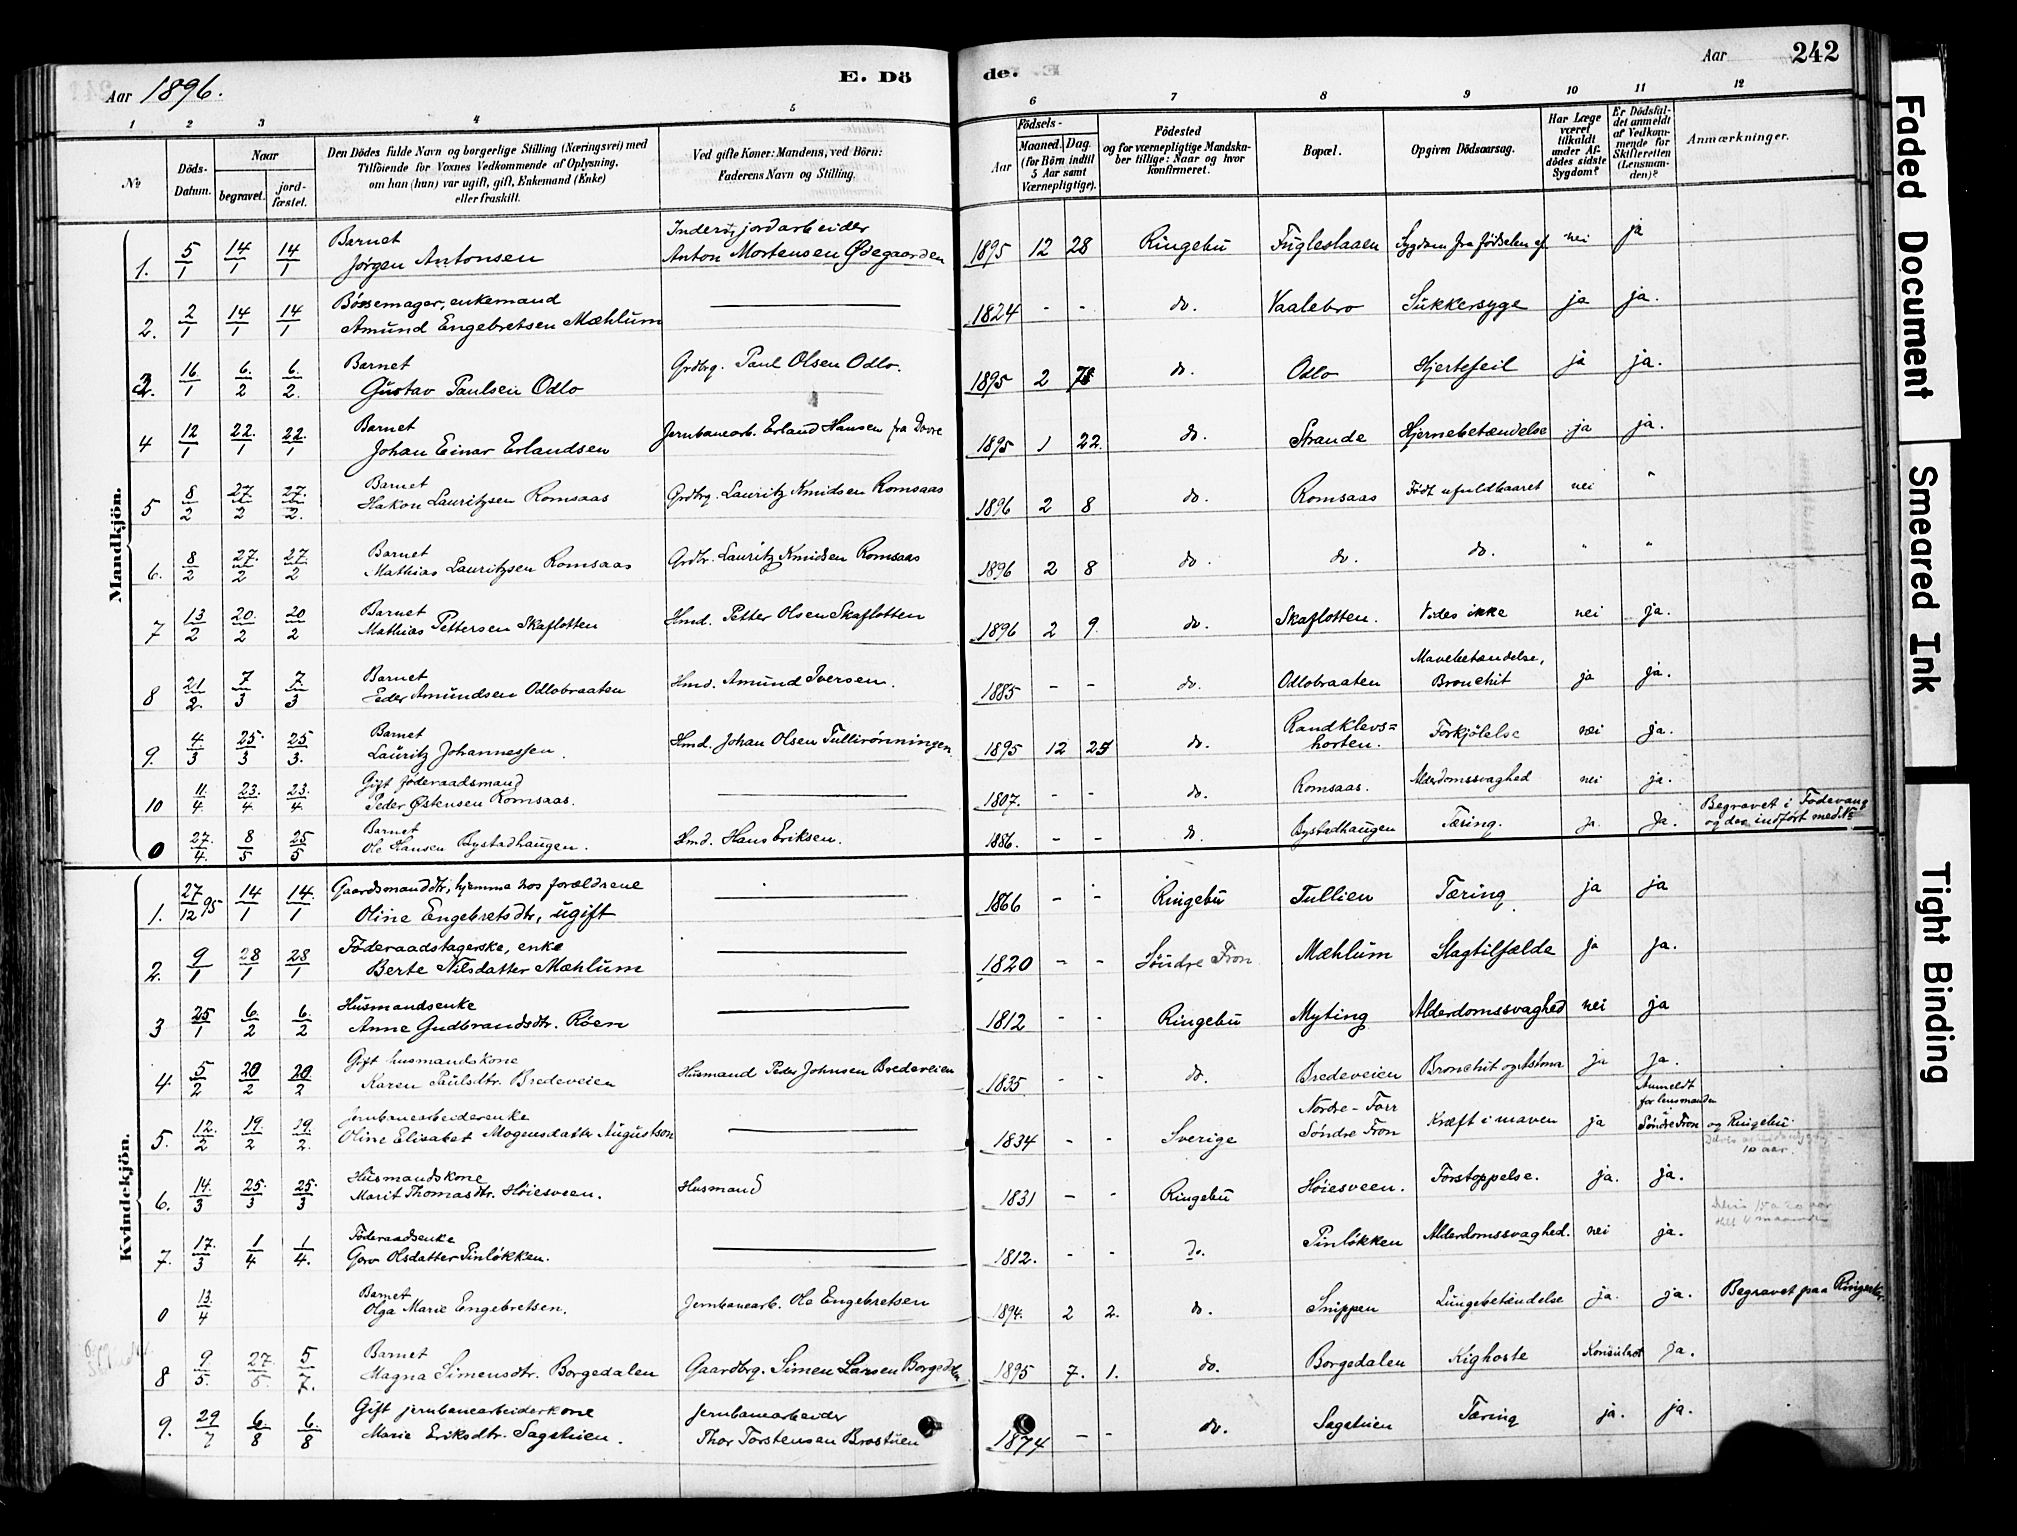 Aar 1896.
E. Dö
de.
Aar 242
1 2 3 4 5 6 7 8 9 10 11 12
No
Döds-Datum.
Naar
begravet.
jord-fæstet.
Den Dödes fulde Navn og borgerlige Stilling (Næringsvei) med
Tilföiende for Voxnes Vedkommende af Oplysning,
om han (hun) var ugift, gift, Enkemand (Enke)
eller fraskilt.
Ved gifte Koner: Mandens, ved Börn:
Faderens Navn og Stilling.
Födsels-
Aar
Maaned. Dag.
(for Börn indtil
5 Aar samt
Værnepligtige).
Födested
og for værnepligtige Mandska-
ber tillige: Naar og hvor
konfirmeret.
Bopæl.
Opgiven Dödsaarsag.
Har Læge
været
tilkaldt
under Af-
dödes sidste
Sygdom?
Er Dödsfal-
det anmeldt
af Vedkom-
mende for
Skifteretten
(Lensman-
den)?
Anmærkninger.
Mandkjön.
1. 5/1 14/1 14/1 Barnet Jörgen Antonsen Inders, jordarbeider Anton Mortensen Ødegaarden 1895 12 28 Ringebu Fugleslaaen Sygdom fra fødselen af nei ja
2. 2/1 14/1 14/1 Börsemager, enkemand Amund Engebretsen Mæhlum 1824 - - do. Vaalebro Sukkersyge ja ja.
3. 16/1 6./2 6./2. Barnet Gustav Paulsen Odlo Grdbrg. Paul Olsen Odlo. 1895 2 do. Odlo Hjertefeil ja ja.
4 12/1 22./1 22./1 Barnet Johan Einar Erlandsen Jernbanearb. Erland Hansen fra Dovre 1895 1 22. do. Strande Hjernebetændelse ja ja.
5 8/2 27/2 27./2. Barnet Hakon Lauritzsen Romsaas Grdbrg. Lauritz Knudsen Romsaas 1896 2 8 do. Romsaas Født ufuldbaaret nei "
6. 8/2 27./2 27/2 Barnet Mathias Lauritzsen Romsaas Grdbr. Lauritz Knudsen Romsaas 1896 2 8 do. do. do. " "
7 13/2 20./2 20/2 Barnet Mathias Pettersen Skaflotten Hmd. Petter Olsen Skaflotten 1896 2 9. do. Skaflotten. Vides ikke nei ja.
8 21/2. 7/3 7./3 Barnet Peder Amundsen Odlobraaten Hmd. Amund Iversen. 1885 - - do. Odlobraaten Mavebetændelse, Bronchit ja ja.
9. 4/3 25./3 25/3. Barnet Lauritz Johannessen. Hmd. Johan Olsen Tullirönningen 1895 12 25 do. Randklevs= horten. Forkjölelse nei ja.
10 11./4. 23./4. 23./4. Gift föderaadsmand Peder Østensen Romsaas. 1807. - - do. Romsaas. Alderdomssvaghed nei ja.
0 27./4. 8/5 25/5 Barnet Ole Hansen Bystadhaugen. Hmd. Hans Eriksen. 1886. - - do. Bystadhaugen Tæring. ja Ja. Begravet i Fodevang og der indfört med No
Kvindekjön.
1. 27/12 95 14/1 14./1 Gaardmanddtr, hjemme hos forældrene Oline Engebretsdtr, ugift 1866 - - Ringebu Tullien Tæring ja ja
2. 9/1 28/1 28/1 Föderaadstagerske, enke Berte Nilsdatter Mæhlum 1820 - - Söndre Fron Mæhlum Slagtilfælde ja ja.
3 25/1 6./2 6./2 Husmandsenke Anne Gudbrandsdtr. Röen 1812 - - Ringebu Myting Alderdomssvaghed nei ja
4. 5/2 20/2 20/2 Gift husmandskone Karen Paulsdtr. Bredeveien Husmand Peder Johnsen Bredeveien 1835 - - do. Bredeveien Bronchit og Astma ja ja.
5. 12./2 19./2 19./2. Jernbanearbeiderenke Oline Elisabet Mogensdatter Augustson 1834 - - Sverige Nordre-Forr Söndre Fron Kræft i maven ja Anmeldt for lensmanden Söndre Fron og Ringebu.
10 aar.
6. 14./3 25./3 25./3 Husmandskone Marit Thomasdtr. Höiesveen. Husmand 1831 - - Ringebu Höiesveen. Forstoppelse. ja. ja.
15 a 20 aar
7. 17./3 1/4 1/4. Föderaadsenke Goro Olsdatter Pinlökken. 1812. - - Do. Pinlökken Alderdomssvaghed. nei ja.
0 13./4 Barnet Olga Marie Engebretsen. Jernbanearb. Ole Engebretsen 1894. 2 2. do. Snippen Lungebetændelse ja. ja. Begravet paa
8 9/5. 27./5. 5/7. Barnet Magna Simensdtr. Borgedalen Gaardbrg. Simen Larsen Borgedalen 1895 7. 1. do. Borgedalen Kighoste Konsulteret Ja.
9. 29/7 6./8 6/8 Gift jernbanearbeiderkone Marie Eriksdtr. Sagstuen. Jernbanearbeider Thor Torstensen Brostuen 1874 - - do. Sagstuen Tæring ja. ja.
Faded Document
Smeared Ink
Tight Binding